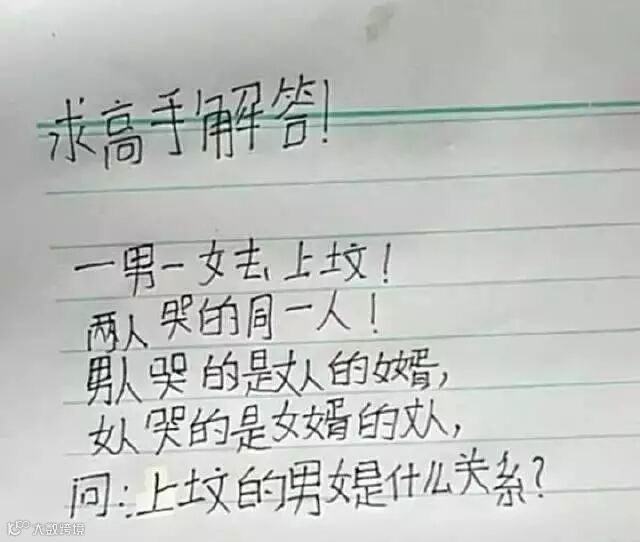 求高手解答!
一男一女去上坟!
两人哭的同一人!
男人哭的是丈人的女婿,
女人哭的是女婿的丈人,
问:上坟的男女是什么关系?
大数跨境